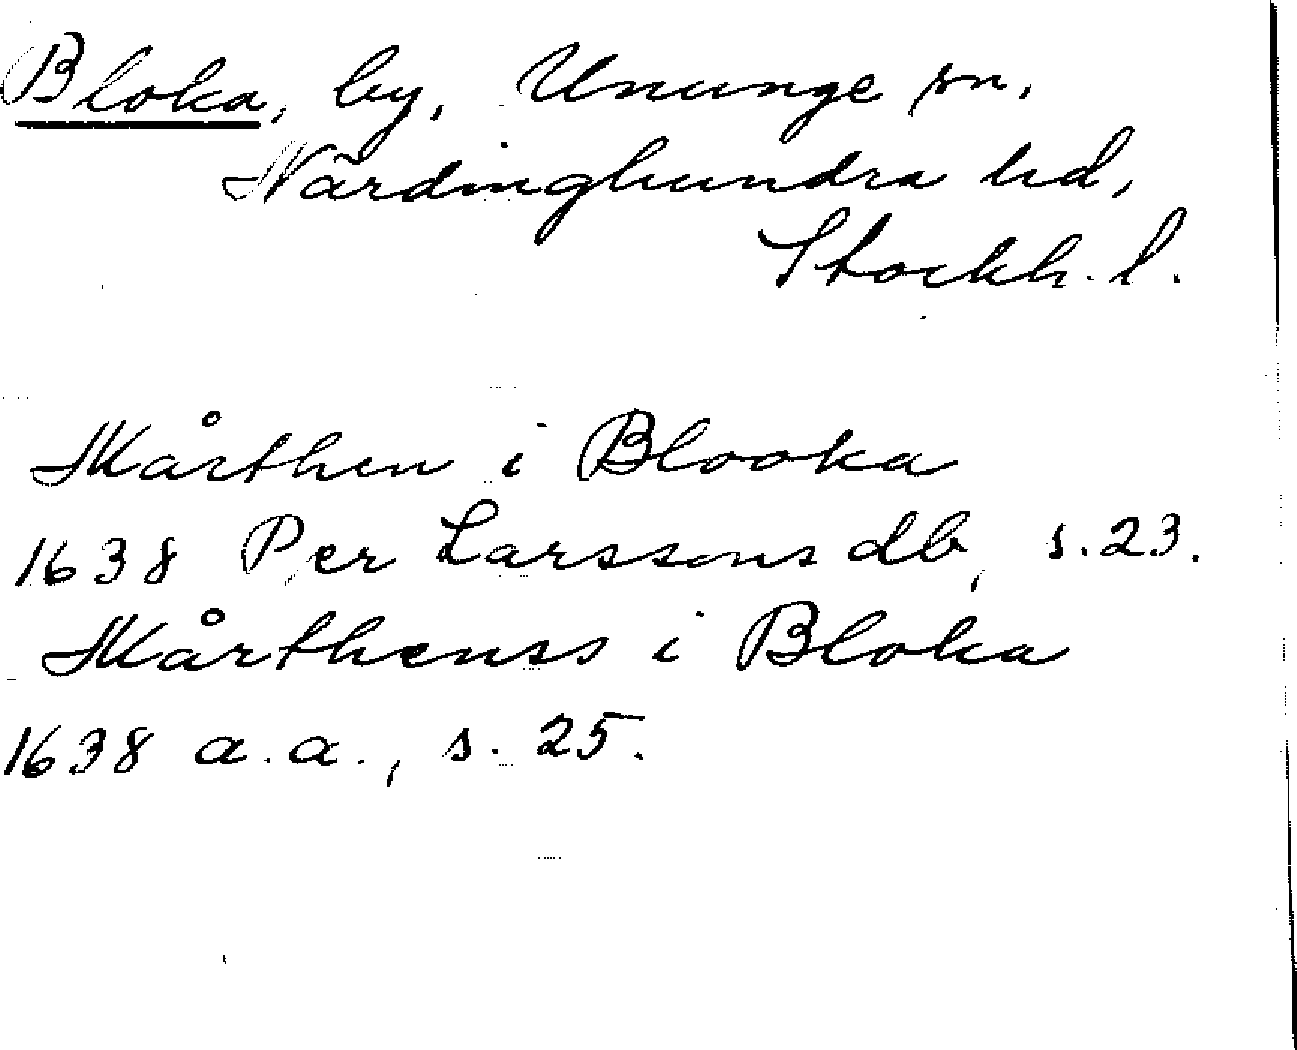 Bloka, by, Ununge sn,
Närdinghundra hd,
Stockh. l.
Mårthen i Blooka
1638 Per Larssons db, s. 23.
Mårthenss i Bloka
1638 a.a., s. 25.